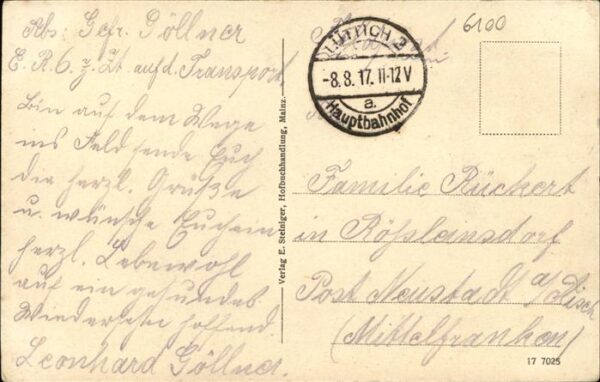 Abs: Gefr. Göllner
E. R. 6. z. Zt. auf d. Transport
bin auf dem Wege
ins Feld sende Euch
die herzl. Grüße
u. wünsche Euch ein
herzl. Lebewohl
auf ein gesundes
Wiedersehn hoffend
Leonhard Göllner.
Verlag E. Steiniger, Hofbuchhandlung, Mainz.
LÜTTICH 2
-8.8.17.11-12V
a.
Hauptbahnhof
6100
Familie Rückert
in
Post Neustadt a/d Aisch
(Mittelfranken)
17 7025